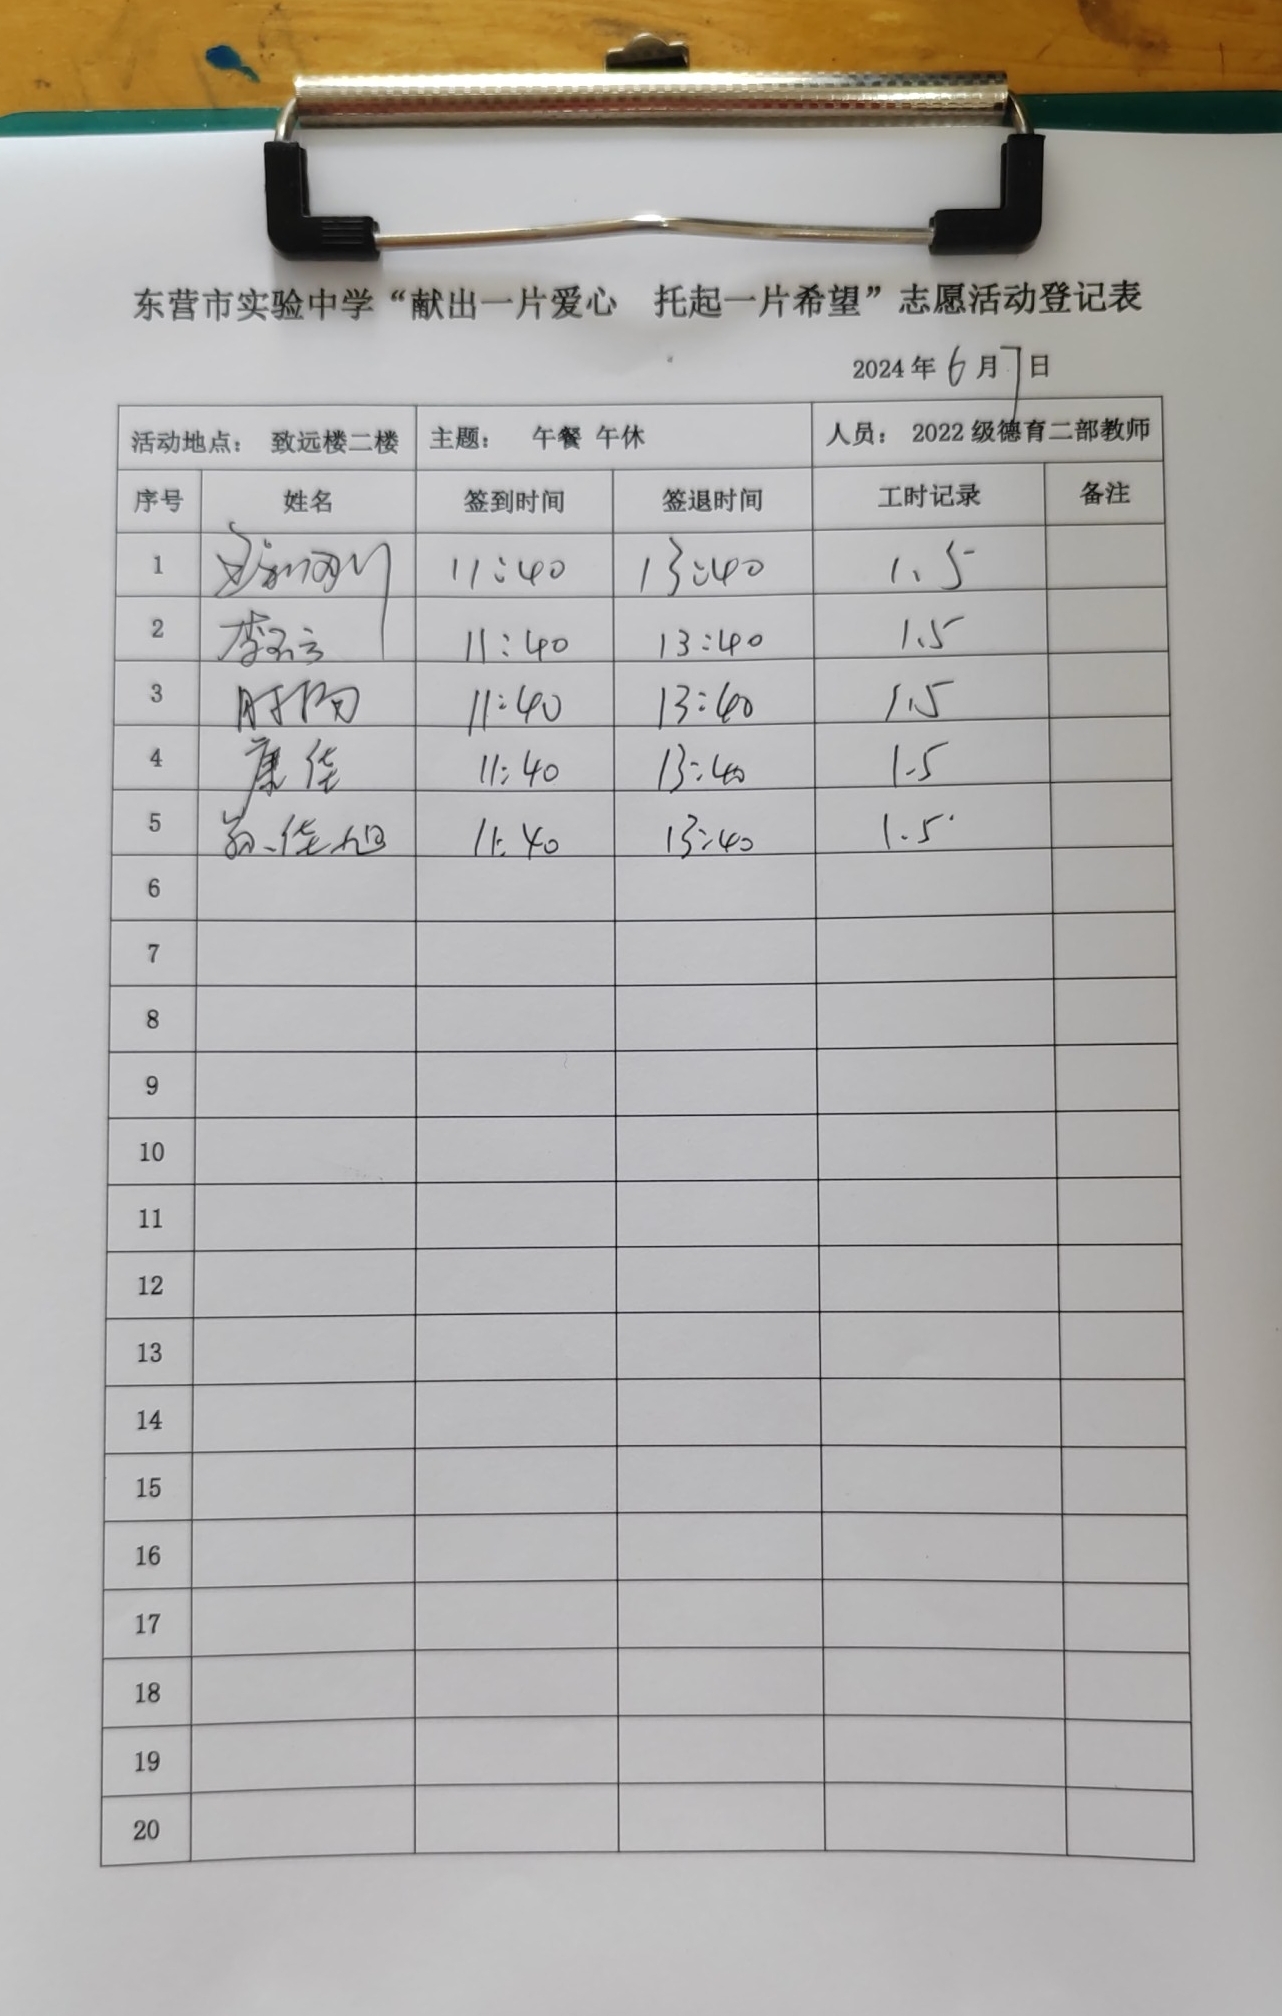 东营市实验中学“献出一片爱心 托起一片希望”志愿活动登记表
2024年6月7日
活动地点： 致远楼二楼 主题： 午餐 午休 人员： 2022级德育二部教师
序号 姓名 签到时间 签退时间 工时记录 备注
1 11:40 13:40 1.5
2 李 11:40 13:40 1.5
3 时阳 11:40 13:40 1.5
4 康佳 11:40 13:40 1.5
5 佳旭 11:40 13:40 1.5
6
7
8
9
10
11
12
13
14
15
16
17
18
19
20